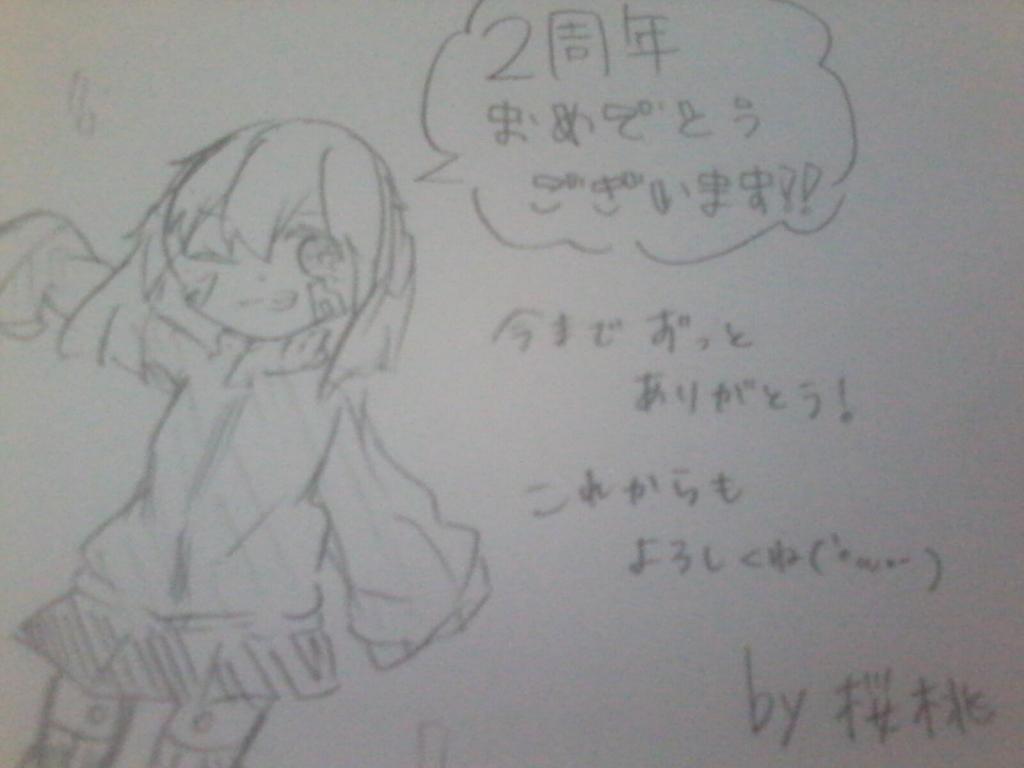 2周年
おめでとう
ございます!!
今までずっと
ありがとう!
これからも
よろしくね(´・ω・`)
by 桜桃